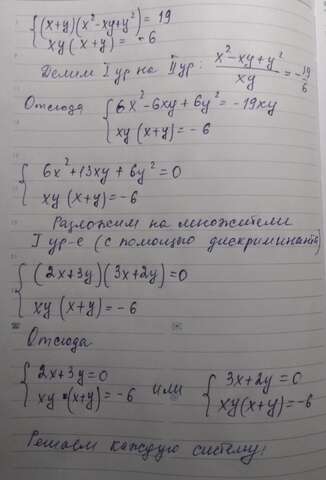 {(x+y)(x²-xy+y²)=19
xy(x+y)=-6
Делим I ур на II ур: (x²-xy+y²)/xy = -19/6
Отсюда {6x²-6xy+6y²=-19xy
xy(x+y)=-6
{6x²+13xy+6y²=0
xy(x+y)=-6
Разложим на множители
I ур-е (с помощью дискриминанта)
{(2x+3y)(3x+2y)=0
xy(x+y)=-6
Отсюда
{2x+3y=0 или {3x+2y=0
xy(x+y)=-6 xy(x+y)=-6
Решаем каждую систему: